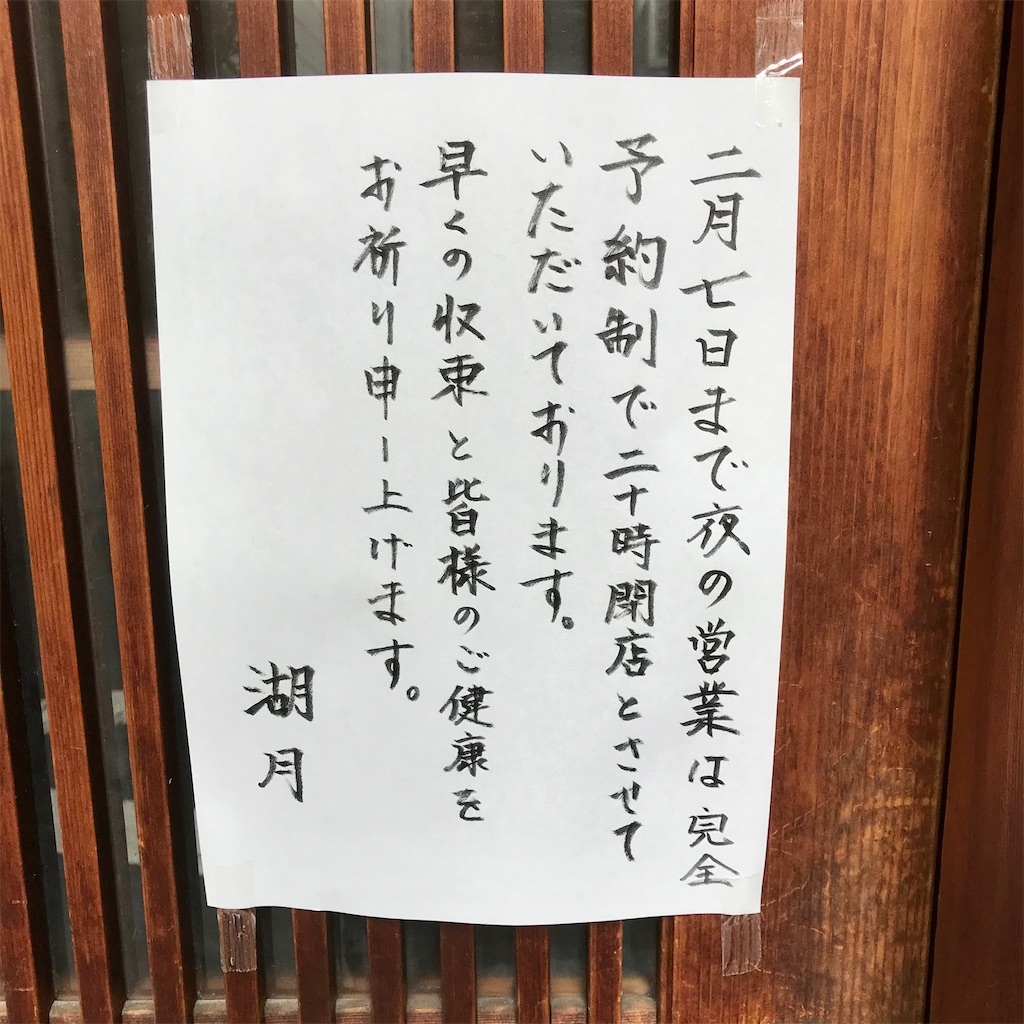 二月七日まで夜の営業は完全
予約制で二十時閉店とさせて
いただいております。
早くの収束と皆様のご健康を
お祈り申し上げます。
湖月